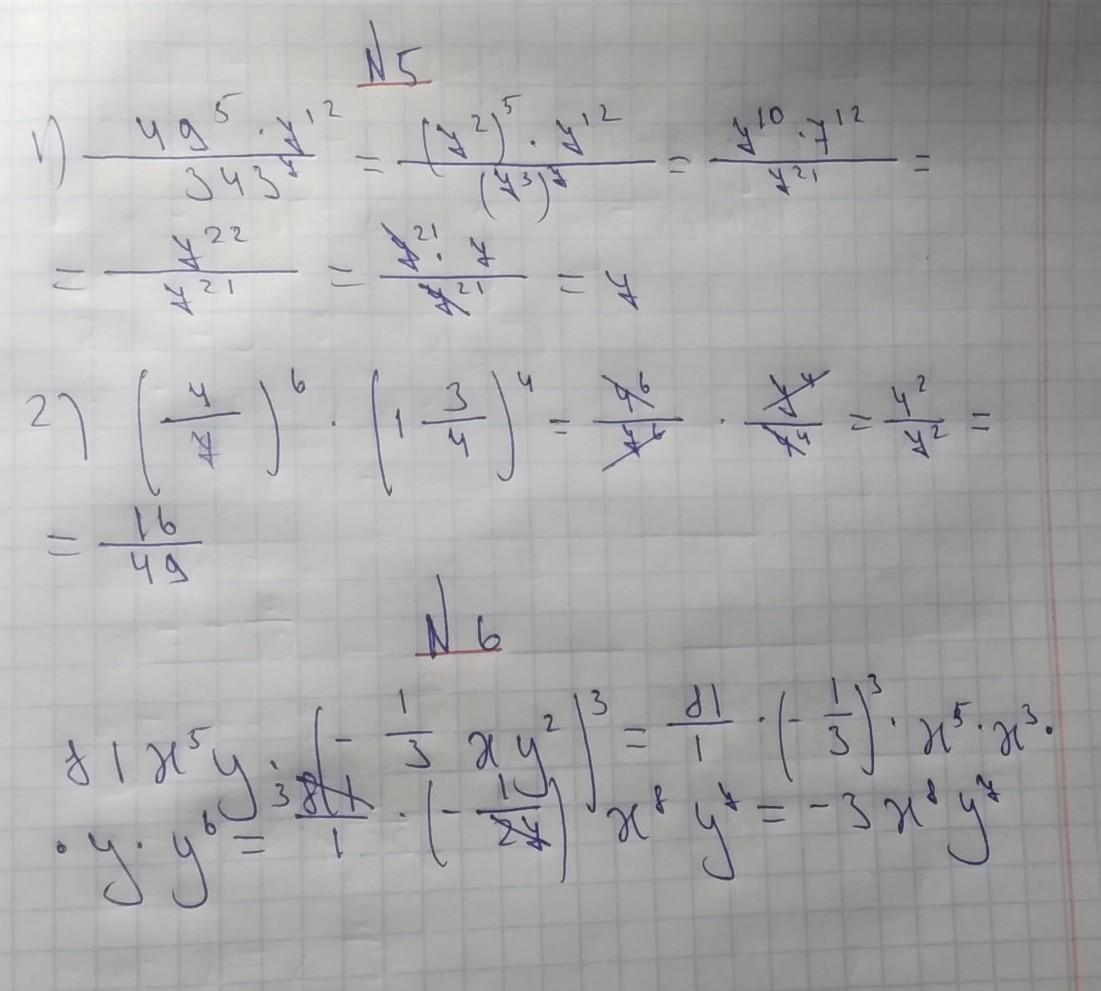 N5
1) 49^5 · 7^12 / 343^7 = (7^2)^5 · 7^12 / (7^3)^7 = 7^10 · 7^12 / 7^21 =
= 7^22 / 7^21 = 7^21 · 7 / 7^21 = 7
2) (4/7)^6 · (1 3/4)^4 = 4^6/7^6 · 7^4/4^4 = 4^2/7^2 =
= 16/49
N 6
81x^5y · (- 1/3 xy^2)^3 = 81/1 · (- 1/3)^3 · x^5 · x^3 ·
· y · y^6 = 3 81/1 · (- 1/27) x^8 y^7 = - 3x^8 y^7